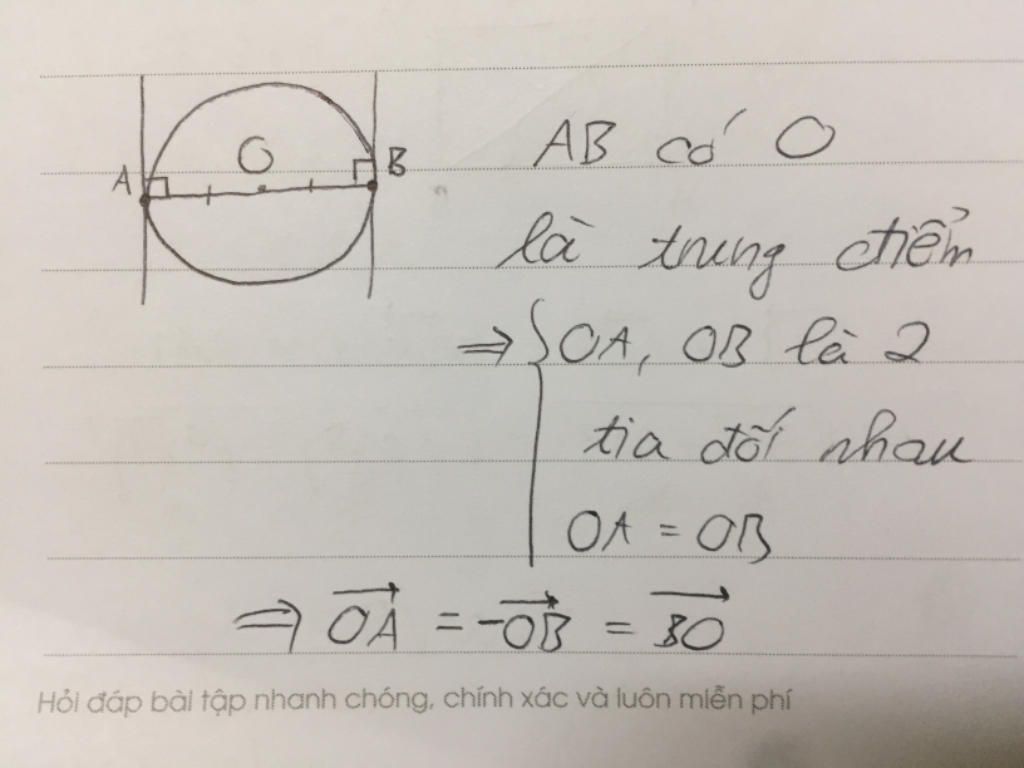 O
A
B
AB có O
là trung điểm
⇒ { OA, OB là 2
tia đối nhau
OA = OB
⇒ \overrightarrow{OA} = -\overrightarrow{OB} = \overrightarrow{BO}
Hỏi đáp bài tập nhanh chóng, chính xác và luôn miễn phí